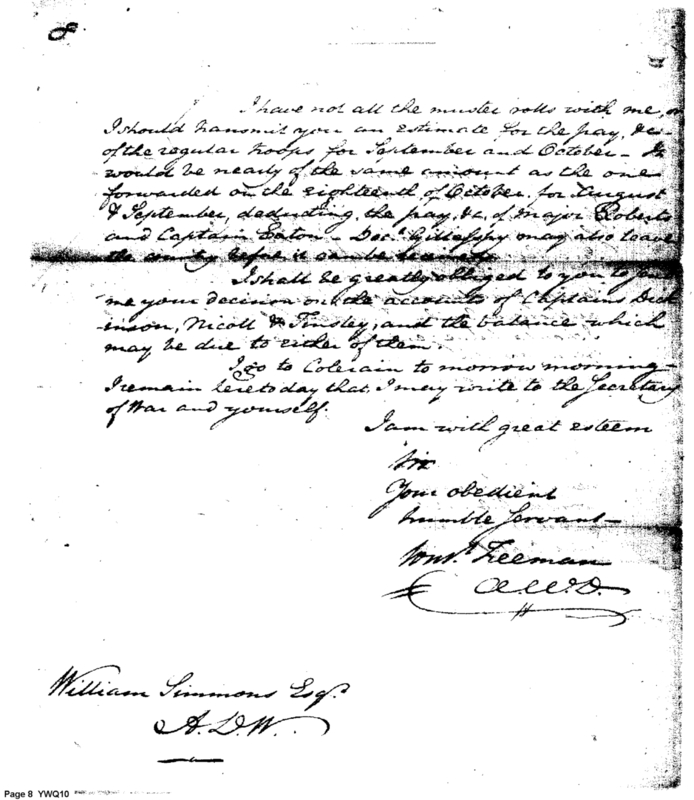 8
I have not all the muster rolls with me, or
I should transmit you an estimate for the pay, &c
of the regular troops for September and October - It
would be nearly of the same amount as the one
forwarded on the eighteenth of October, for August
& September, deducting the pay, &c. of Major Roberts
and Captain Eaton - Docr. Gillespy may also leave
the county before it can be
I shall be greatly obliged to you to
me your decision on the accounts of Captains Dick
inson, Nicoll & Tinsley, and the balance which
may be due to either of them.
I go to Colerain to morrow morning -
I remain here to day that I may write to the Secretary
of War and yourself.
I am with great esteem
Sir
Your obedient
humble Servant -
Const. Freeman
A.W.D.
William Simmons Esqr.
A.D.W.
Page 8 YWQ10